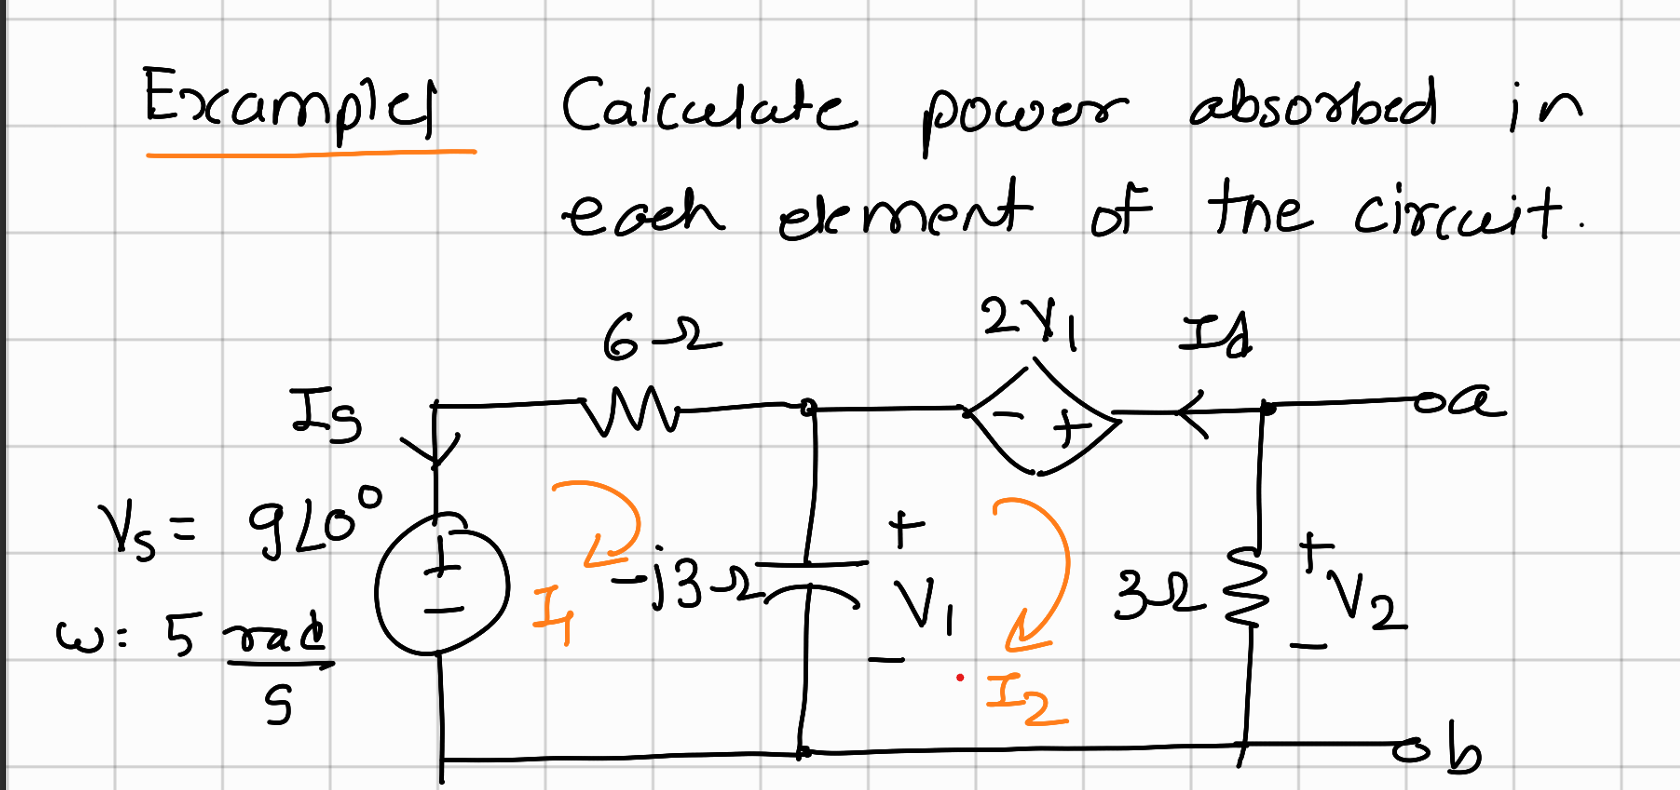 Example Calculate power absorbed in
each element of the circuit.
6Ω
2V1
Id
Is
a
Vs = 9∠0°
-j3Ω
+
V1
-
3Ω
+
V2
-
I1
ω: 5 rad/s
I2
b